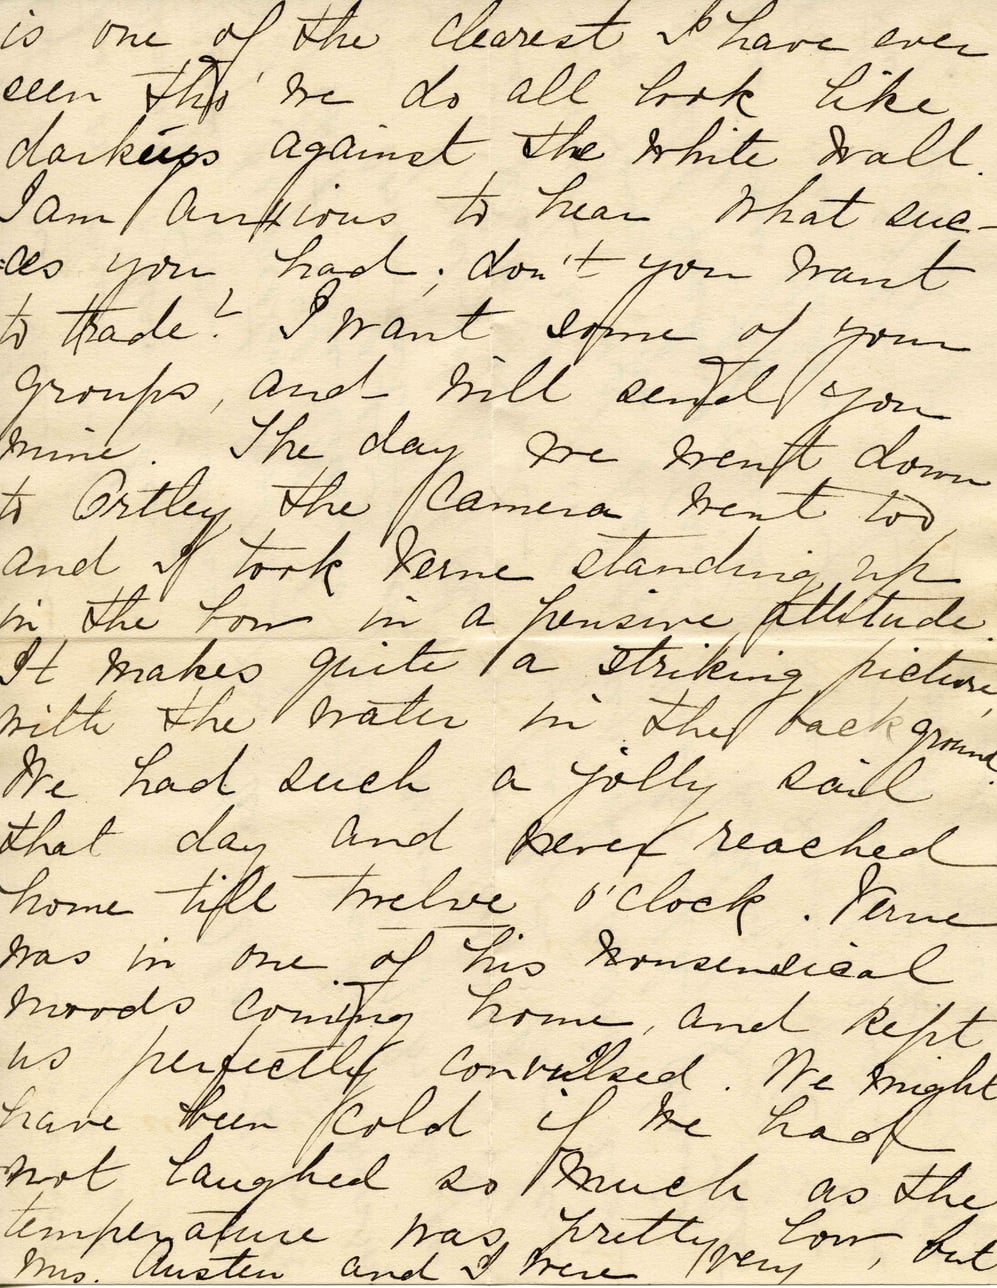 is one of the clearest I have ever
seen tho' we do all look like
darkeys against the white wall.
I am anxious to hear what suc-
=ces you had; don't you want
to trade? I want some of your
groups, and will send you
mine. The day we went down
to Ortley the camera went too,
and I took Verne standing up
in the bow in a pensive attitude.
It makes quite a striking picture,
with the water in the background.
We had such a jolly sail
that day and never reached
home till twelve o'clock. Verne
was in one of his nonsensical
moods coming home, and kept
us perfectly convulsed. We might
have been cold if we had
not laughed so much as the
temperature was pretty low, but
Mrs. Austen and I were very